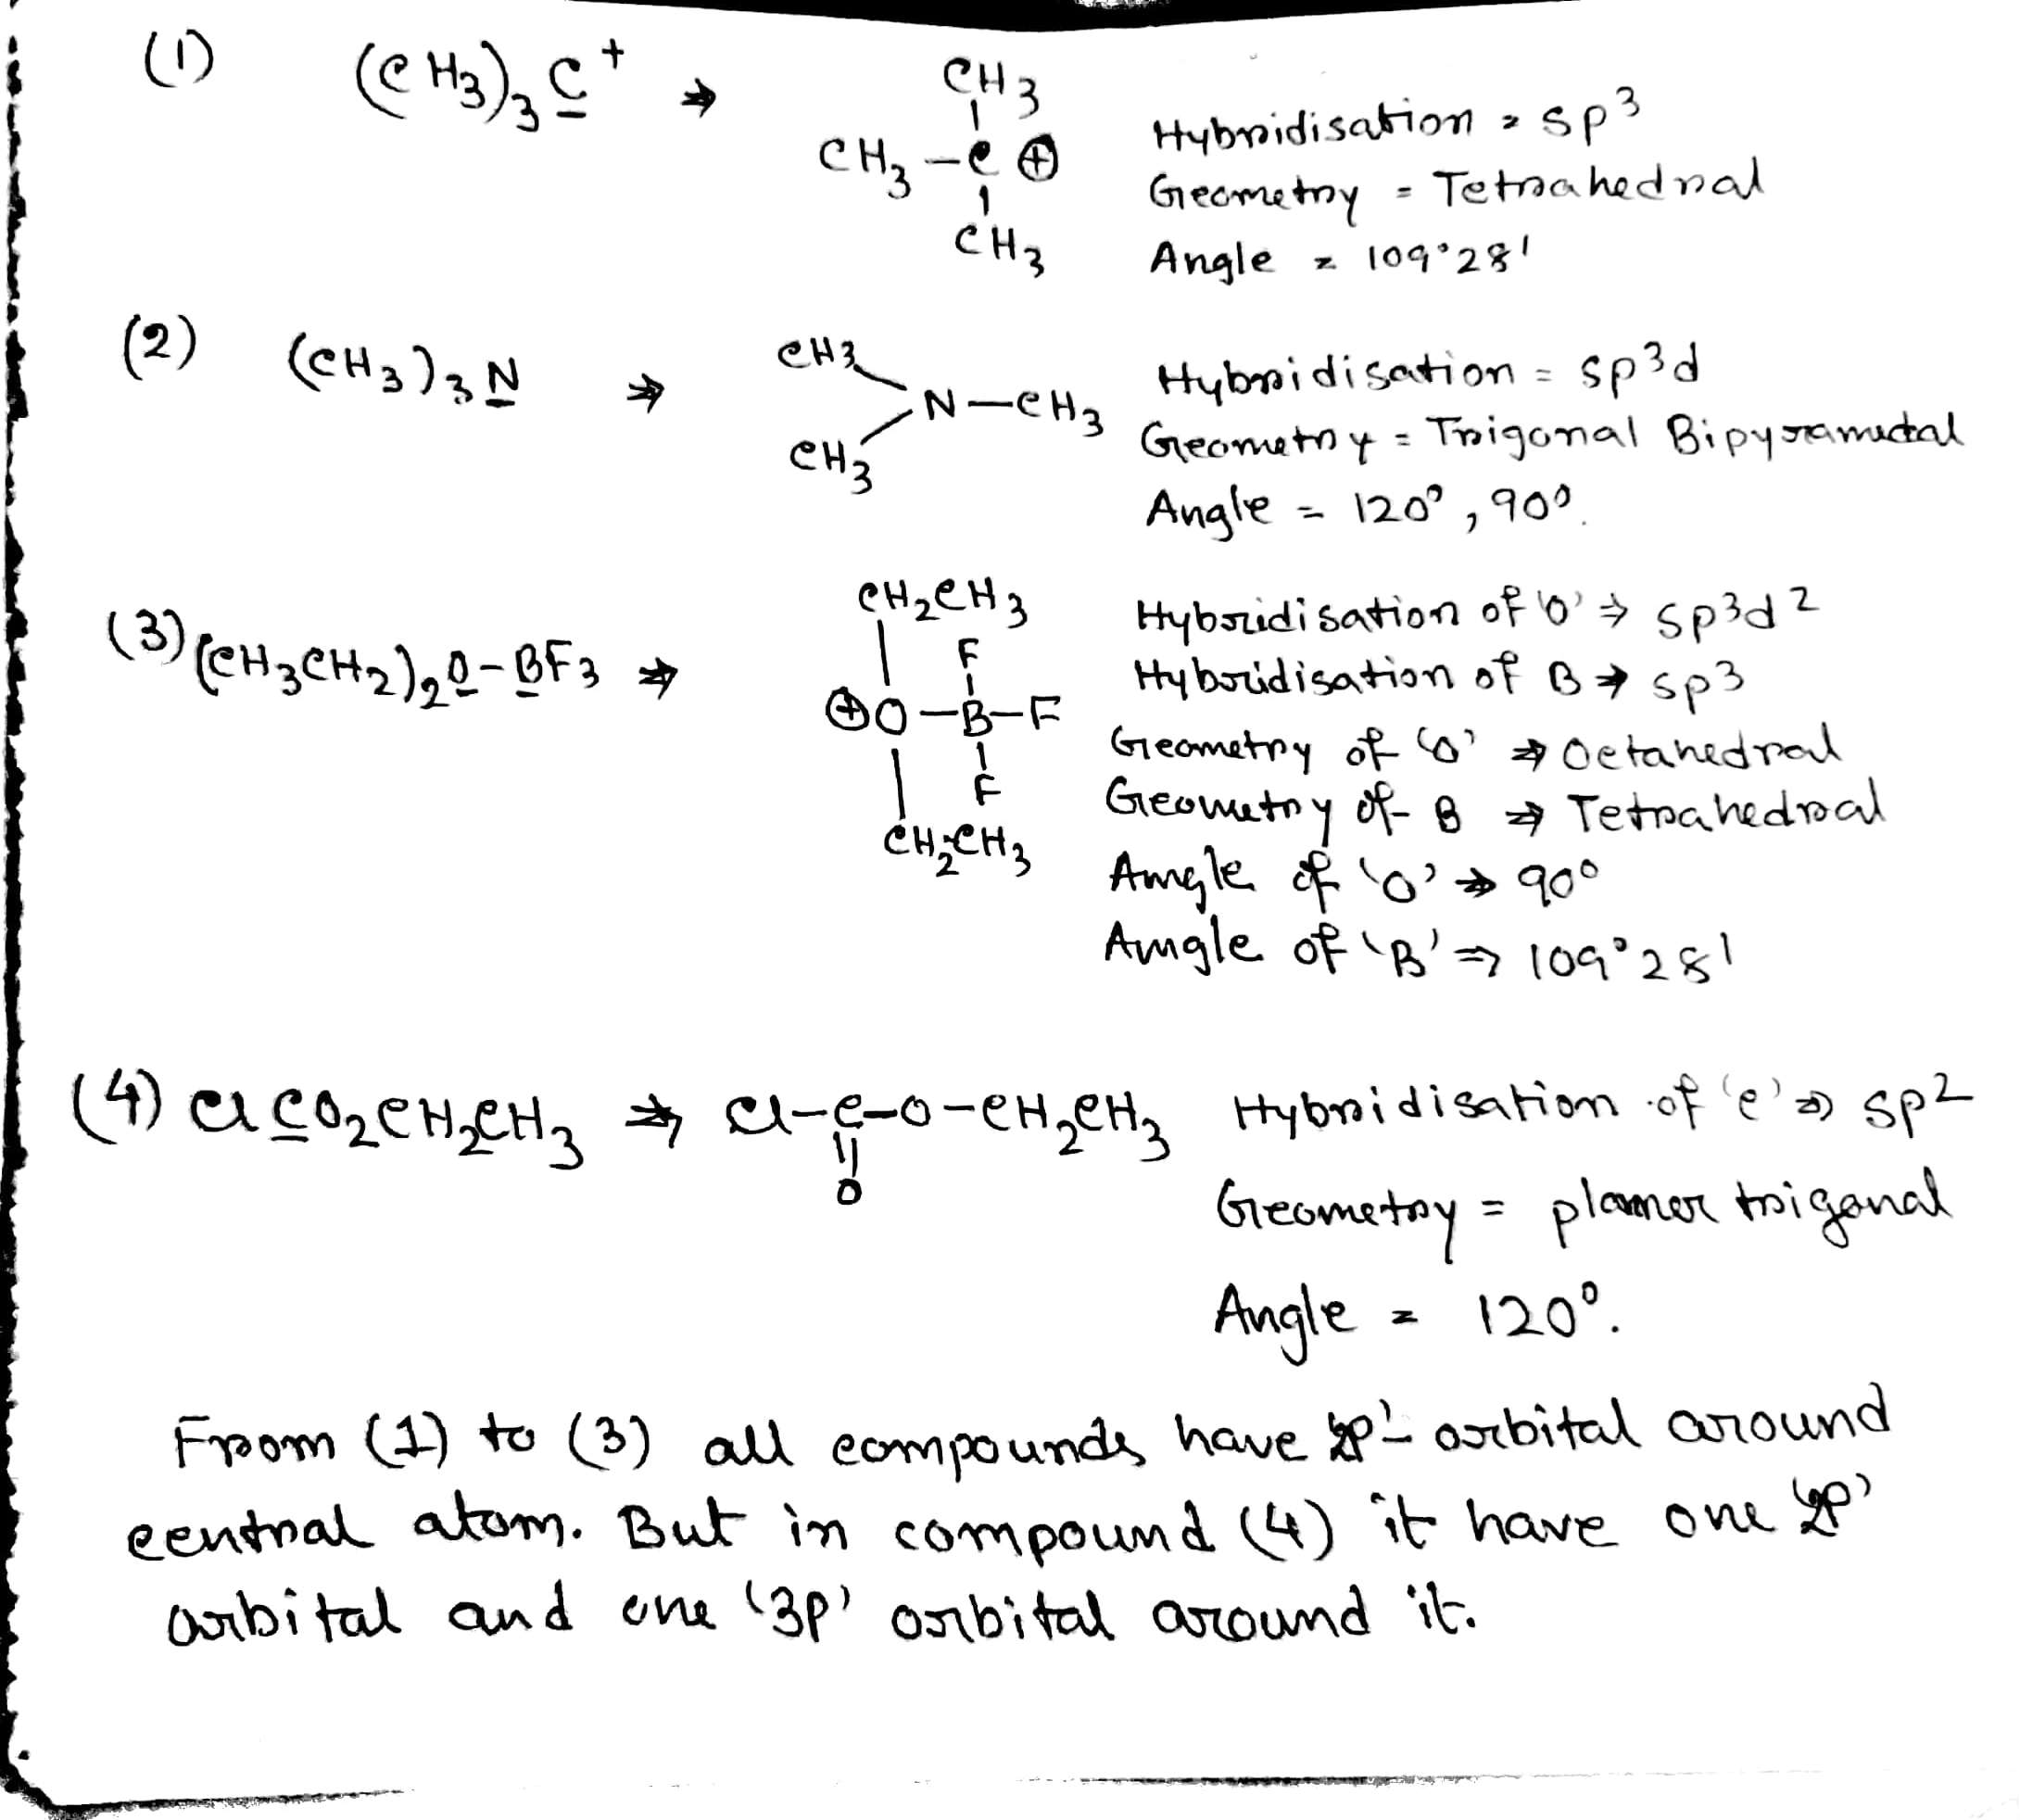 (1) (CH3)3C+ ⇒ CH3
CH3-C⊕
CH3
Hybridisation = sp3
Geometry = Tetrahedral
Angle = 109°28'
(2) (CH3)3N ⇒ CH3
N-CH3
CH3
Hybridisation = sp3d
Geometry = Trigonal Bipyramidal
Angle = 120°, 90°.
(3) (CH3CH2)2O-BF3 ⇒ CH2CH3
F
⊕O-B-F
F
CH2CH3
Hybridisation of 'O' ⇒ sp3d2
Hybridisation of B ⇒ sp3
Geometry of 'O' ⇒ Octahedral
Geometry of B ⇒ Tetrahedral
Angle of 'O' ⇒ 90°
Angle of 'B' ⇒ 109°28'
(4) ClCO2CH2CH3 ⇒ Cl-C-O-CH2CH3
||
O
Hybridisation of 'C' ⇒ sp2
Geometry = planner trigonal
Angle = 120°.
From (1) to (3) all compounds have orbital around
central atom. But in compound (4) it have one '2p'
orbital and one '3p' orbital around it.